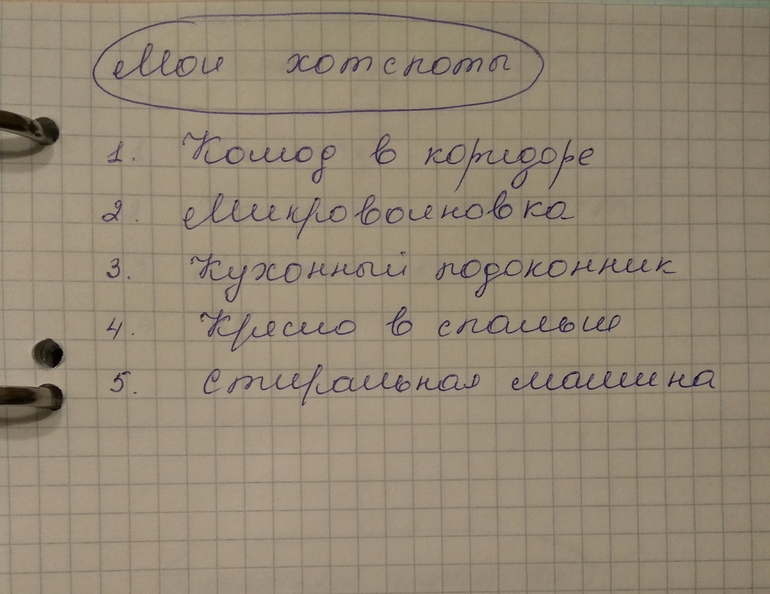 Мои хотспоты
1. Комод в коридоре
2. Микроволновка
3. Кухонный подоконник
4. Кресло в спальне
5. Стиральная машина